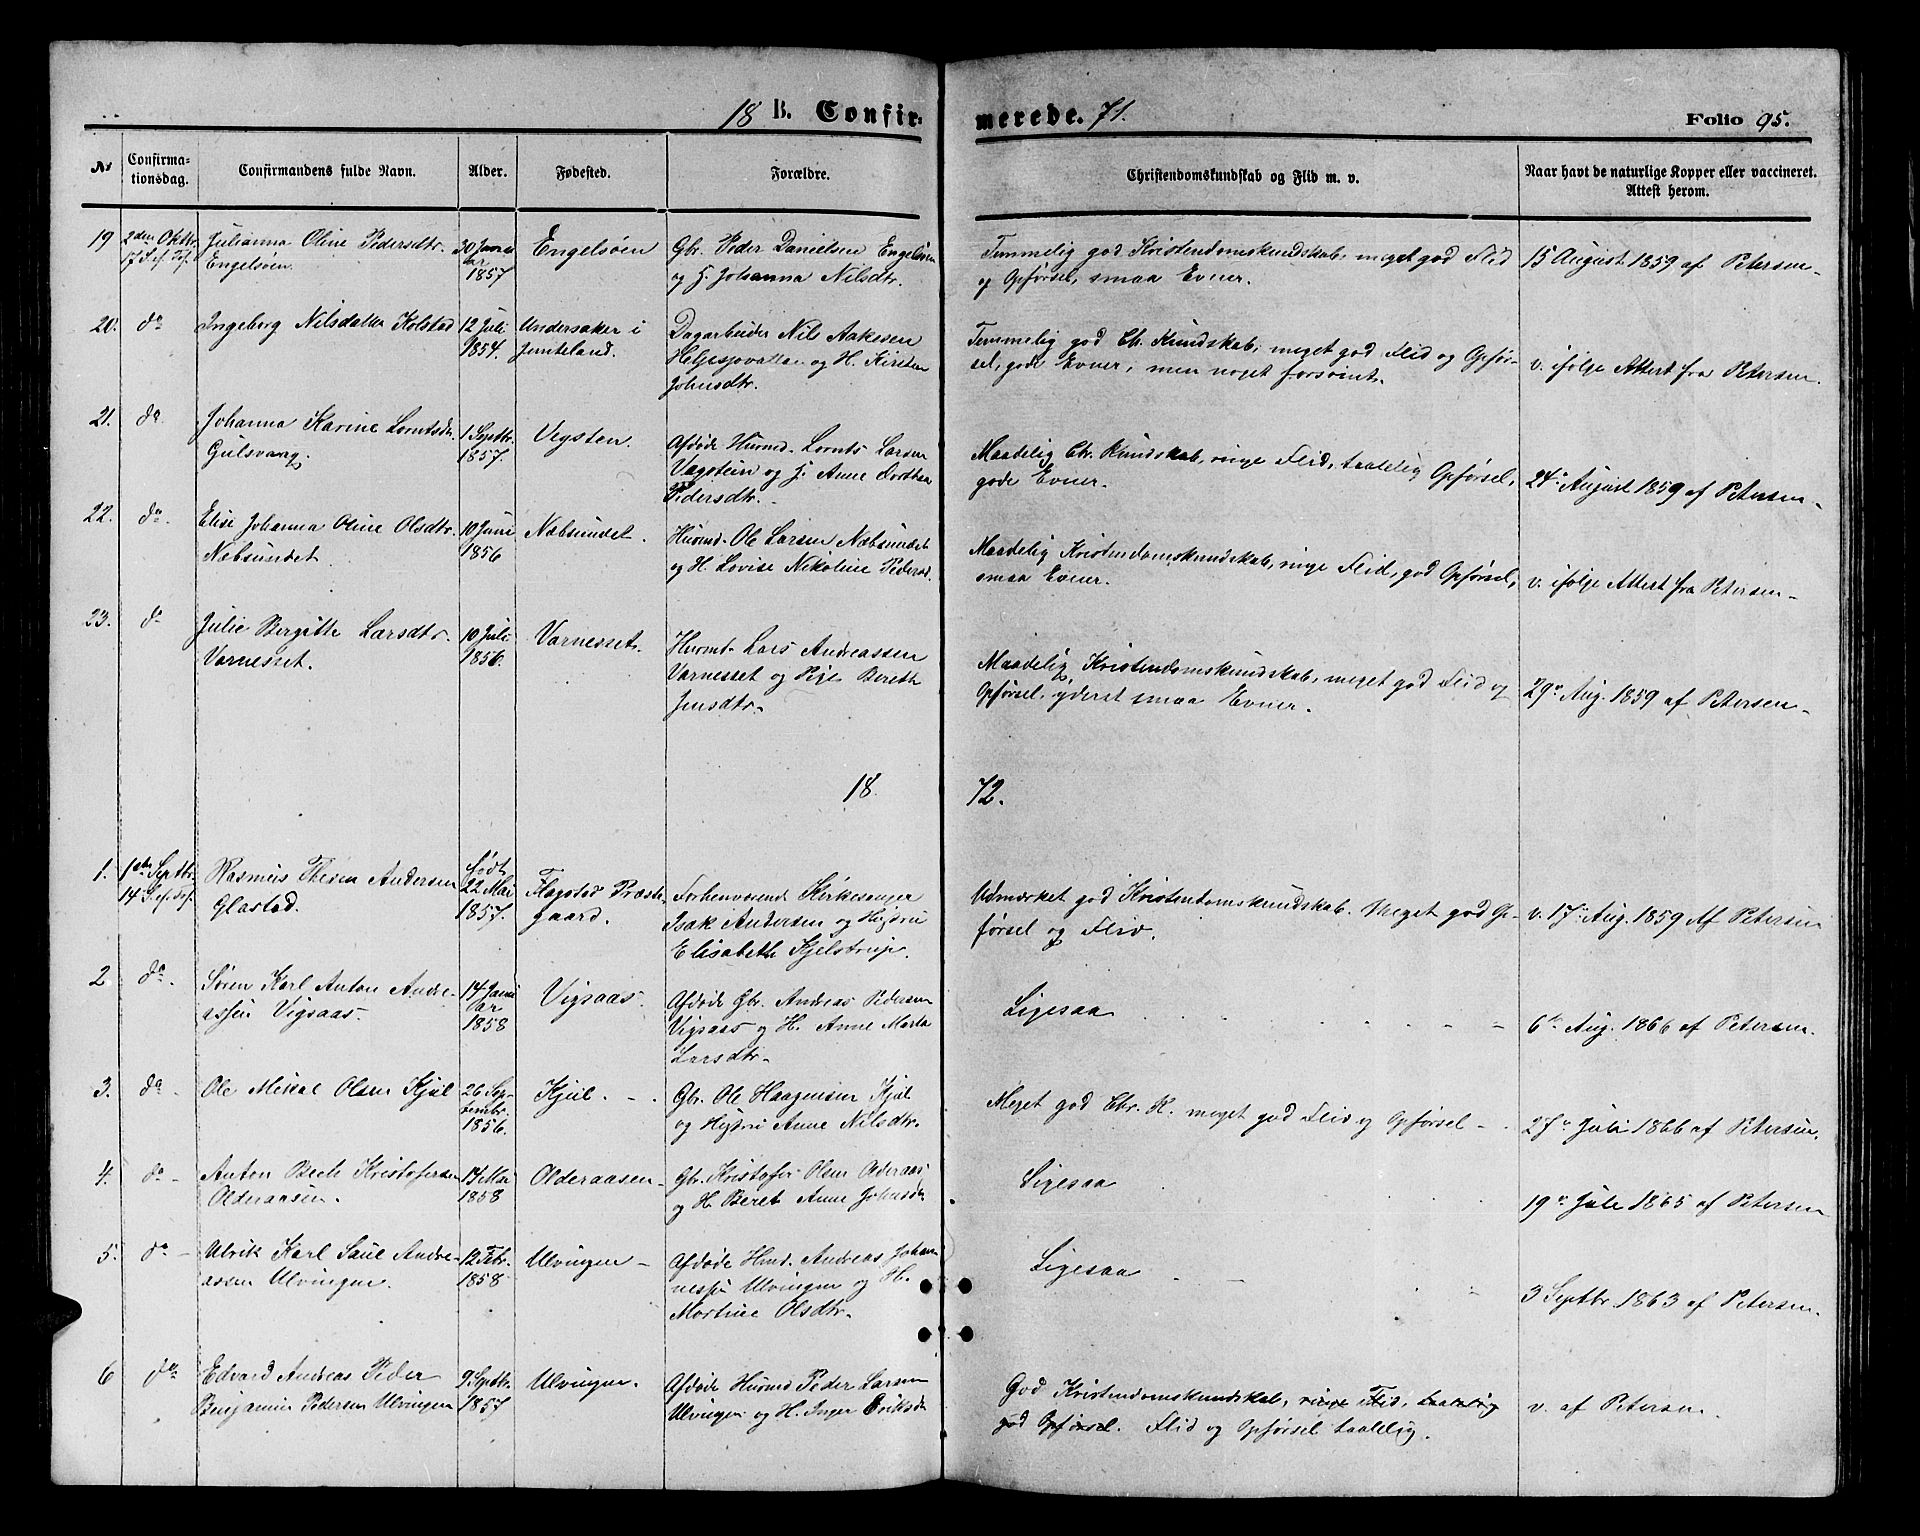 18 B. Confirmerede. 71. Folio 95.
Nr
Confirmationsdag.
Confirmandens fulde Navn.
Alder.
Fødested.
Forældre.
Christendomskundskab og Flid m. v.
Naar havt de naturlige Kopper eller vaccineret.
Attest herom.
19 2den Oktbr. Julianna Oline Pedersdtr. 30 Janu Engelsøen Gbr. Peder Danielsen Engelsøen Temmelig god Kristendomskundskab, meget god Flid 15 August 1859 af Petersen-
17 S. ef. Tref. Engelsøen. ar og H. Johanna Nilsdtr. og Opførsel, smaa Evner.
1857
20. do Ingeborg Nilsdatter Kolstad 12 Juli Undersaker i Dagarbeider Nils Aakesen Temmelig god Chr. Kundskab, meget god Flid og Opfør-
1854. Jemteland. og H. Kirsten sel, gode Evner, men noget forsømt. v. ifølge Attest fra Petersen.
Johnsdtr.
21. do Johanna Karine Lorntsdtr. 1 Septbr. Vegsten. Afdøde Huusmd. Lornts Larsen Maadelig Chr. Kundskab, ringe Flid, taalelig Opførsel,
Gulsvang. 1857. og H. Anne Dorthea gode Evner. 24de August 1859 af Petersen-
Pedersdtr.
22. do Elise Johanna Oline Olsdtr. 10 Juni Næbsundet. Huusmd. Ole Larsen Næbsundet Maadelig Kristendomskundskab, ringe Flid, god Opførsel,
Næbsundet. 1856 og H. Lovise Nikoline Pedersd. smaa Evner. v. ifølge Attest fra Petersen-
23. do Julie Bergitte Larsdtr. 10 Juli Varnesset. Huusmd. Lars Andreassen Maadelig Kristendomskundskab, meget god Flid og
Varnesset. 1856. Varnesset og Pige Bereth Opførsel, yderst smaa Evner. 29de Aug. 1859 af Petersen-
Jensdtr.
18 72.
1. 1ste Septbr. Rasmus Andersen Født Flagstad Præste- Forhenværende Kirkesanger Udmærket god Kristendomskundskab. Meget god Op-
14 S. ef. Tref. Glastad. 22 Mai gaard. Isak Andersen og Hustru førsel og Flid. v. 17de Aug. 1859 Af Petersen
1857. Elisabeth Kjelstrup.
2 do. Søren Karl Anton Andre- 14 Janu Vigsaas. Afdøde Gbr. Andreas Pedersen Ligesaa
assen Vigsaas. ar Vigsaas og H. Anne Marta 6te Aug. 1866 af Petersen.
1858 Larsdtr.
3. do Ole Mikal Olsen Kjul 26 Sep- Kjul. Gbr. Ole Haagensen Kjul Meget god Chr. K. meget god Flid og Opførsel
tembr. og Hustru Anne Nilsdtr. 27de Juli 1866 af Petersen.
1856.
4. do Anton Bech Kristofersen 14 Mai Olderaasen Gbr. Kristofer Olsen Olderaas Ligesaa
Olderaasen. 1858 og H. Beret Anne Johnsdtr. 19de Juli 1865 af Petersen
5. do Ulrik Karl Saul Andre- 12 Febr. Ulvingen Afdøde Hmd. Andreas Johan- Ligesaa
assen Ulvingen. 1858 nessen Ulvingen og H. 3 Septbr 1863 af Petersen.
Martine Olsdtr.
6 do Edvard Andreas Peder 9 Septbr. Ulvingen. Afdøde Huusmd Peder Larsen God Kristendomskundskab, ringe Flid, taalelig
Benjamin Pedersen Ulvingen 1857 Ulvingen og H. Inger Eriksdtr god Opførsel. Flid og Opførsel taalelig. v. af Petersen.